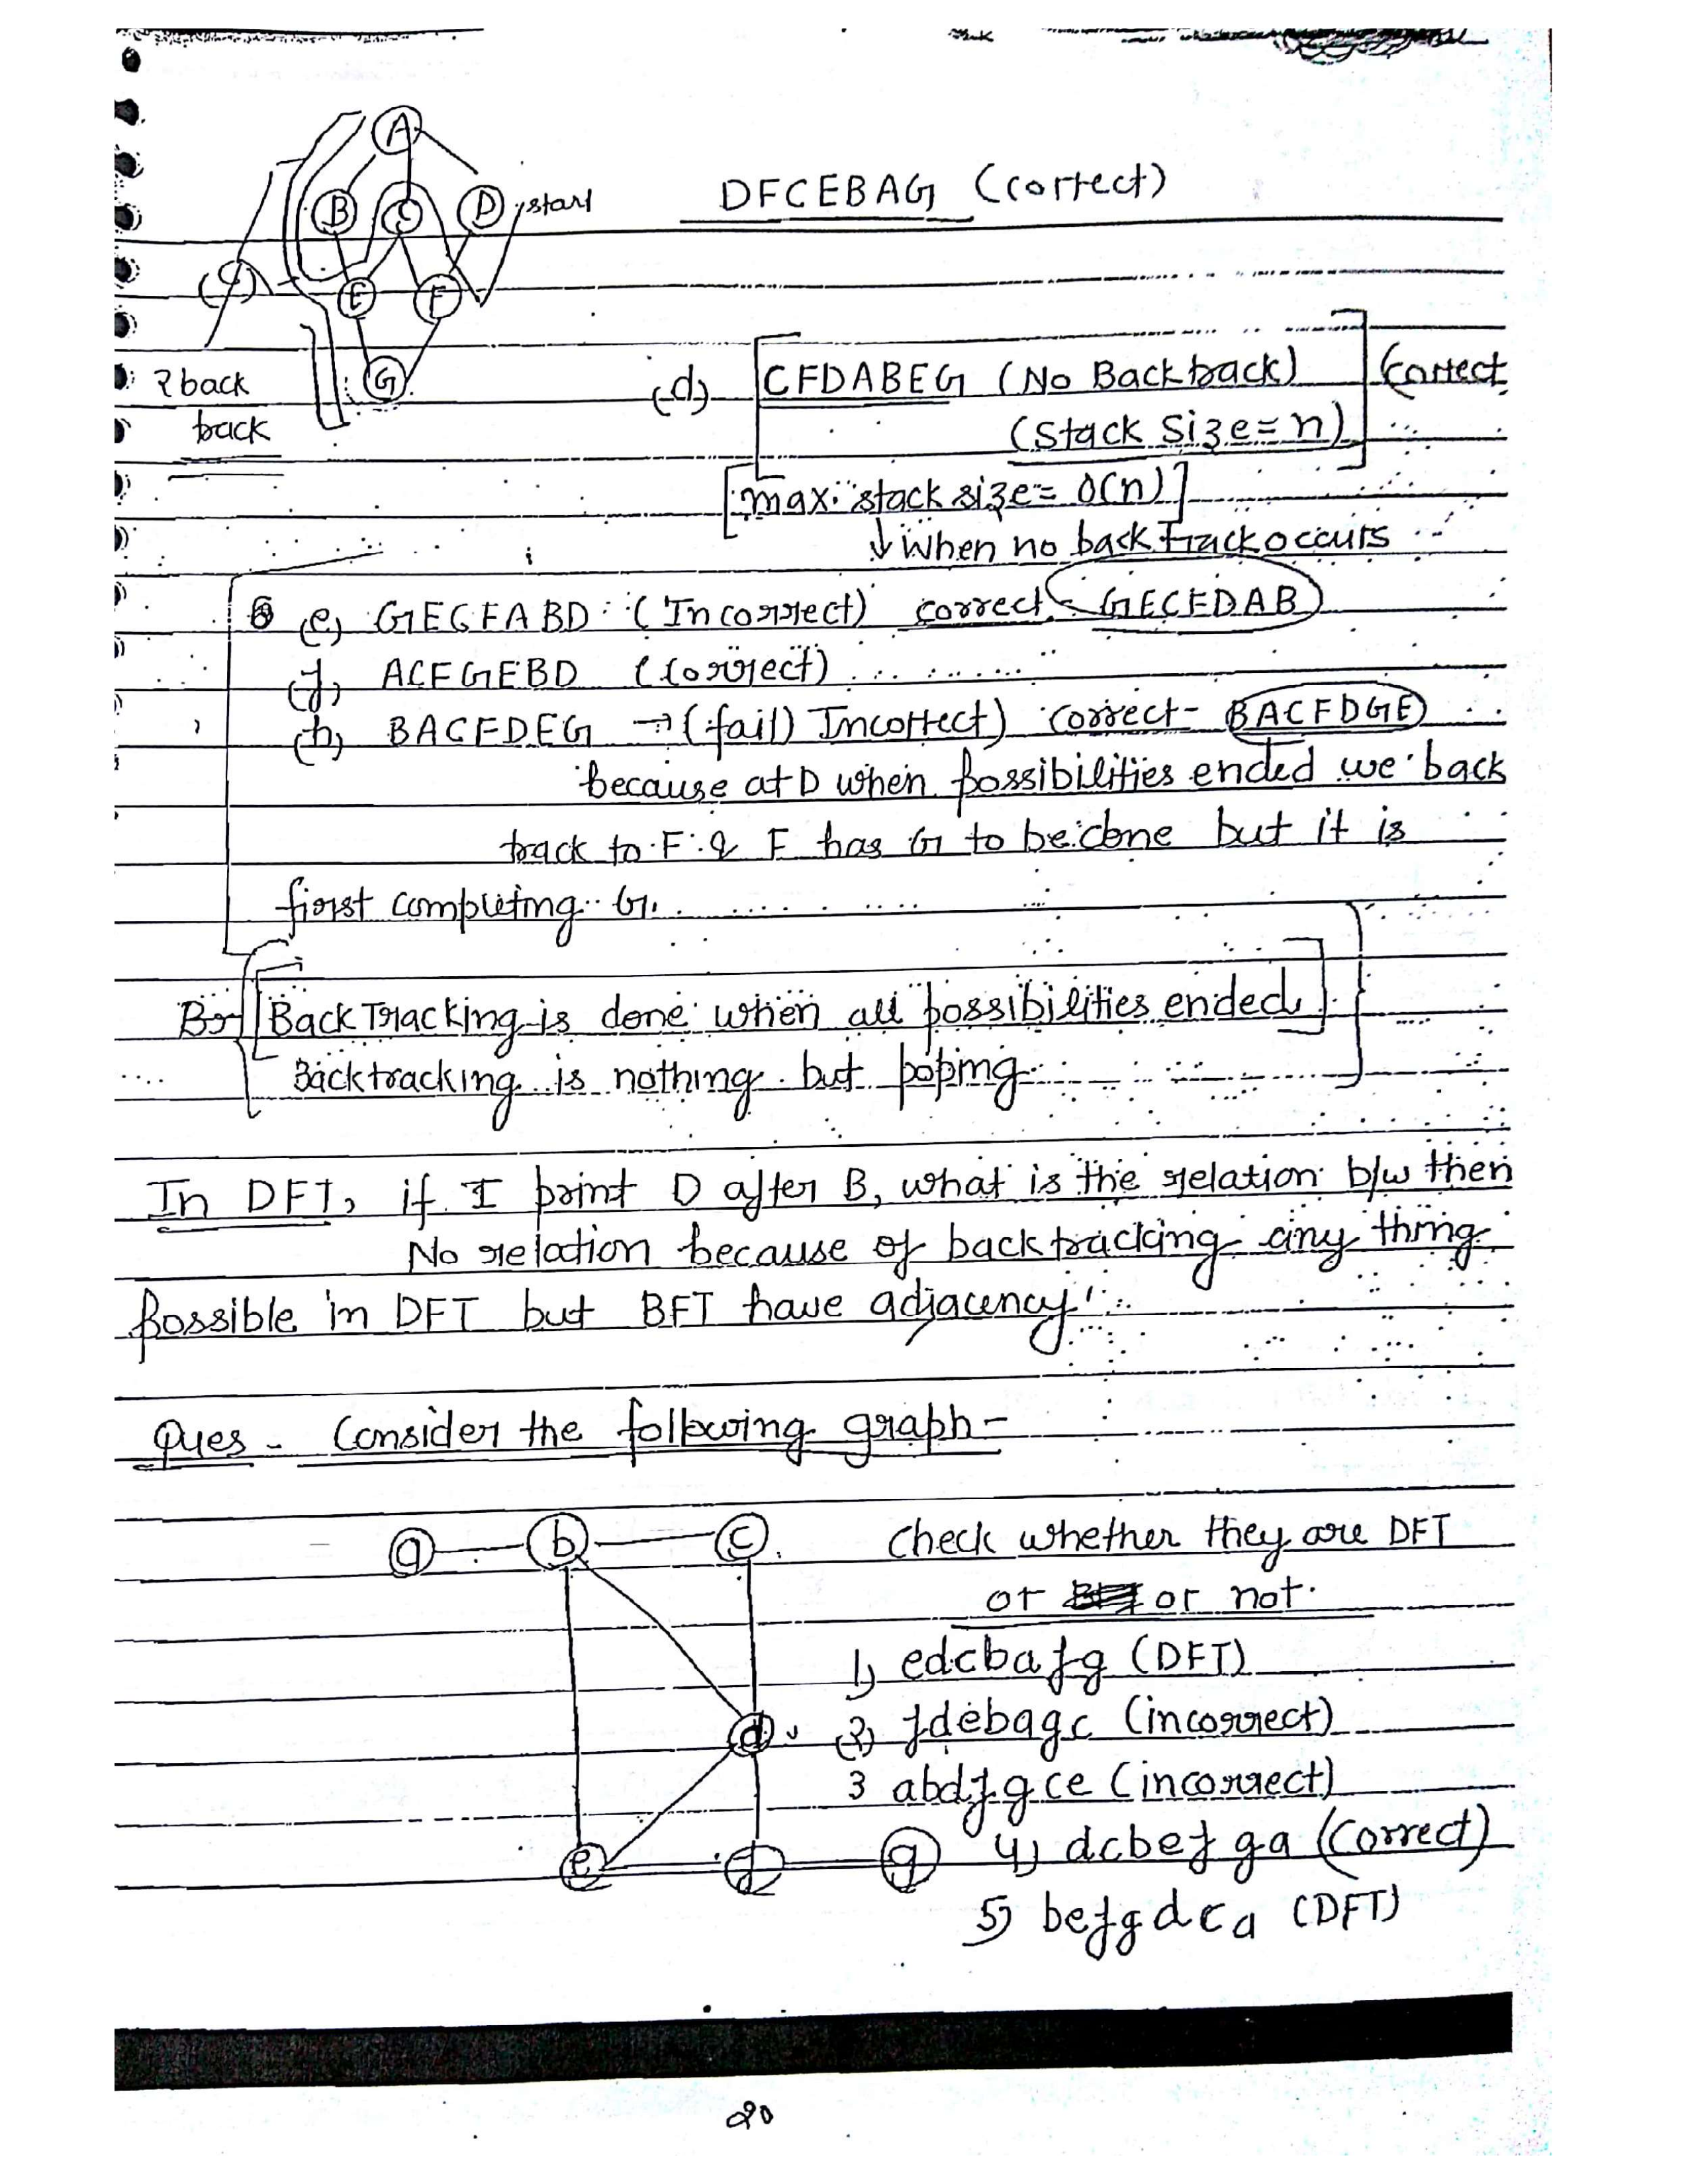 A
B C D start
DFCEBAG (correct)
E F
G
2 back
track
(d) CFDABEG (No Backtrack) Correct
(Stack Size = n)
max. stack size = O(n)
↓ when no back track occurs
(e) GECFABD (Incorrect) correct - GECFDAB
(f) ACFGEBD (Correct)
(h) BACFDEG → (fail) Incorrect) correct - BACFDGE
because at D when possibilities ended we back
track to F & F has G to be done but it is
first completing G.
BackTracking is done when all possibilities ended.
Backtracking is nothing but poping
In DFT, if I print D after B, what is the relation b/w then
No relation because of backtracking any thing
possible in DFT but BFT have adjacency
Ques - Consider the following graph -
a b c check whether they are DFT
or or not.
1) edcbafg (DFT)
d (2) fdebagc (incorrect)
3 abdfgce (incorrect)
e f g 4) dcbefga (Correct)
5) befgdca (DFT)
20